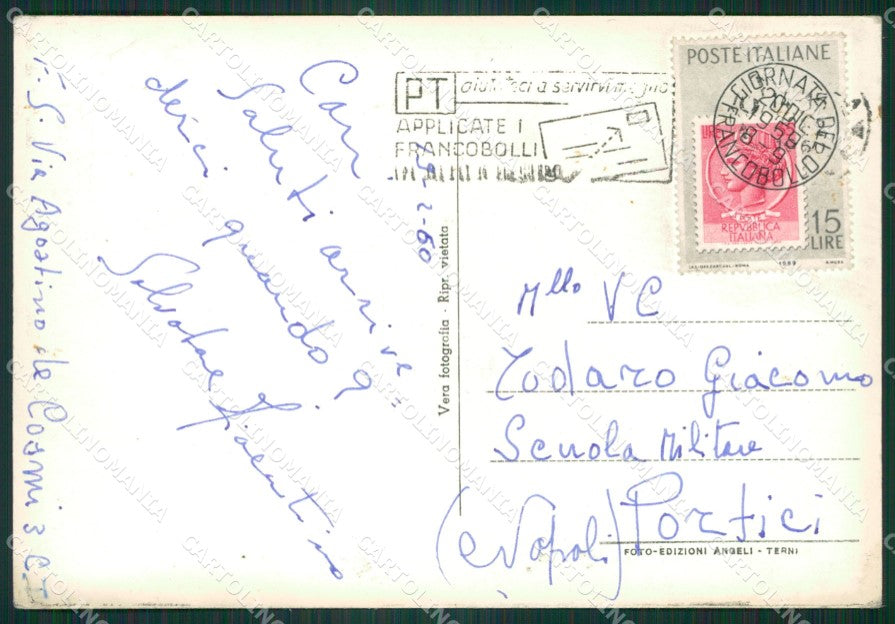 Cari
Saluti arrive=
derci quando?
Salvatore
V.S. Via Agostino de Cosmi 3 CT
2-60
Vera fotografia - Ripr. vietata
PT aiutateci a servirvi meglio
APPLICATE I
FRANCOBOLLI
POSTE ITALIANE
GIORNATA DEL
FRANCOBOLLO
20 DIC
1959
LIRE
REPUBBLICA
ITALIANA
15
LIRE
1959
Mllo VC
Todaro Giacomo
Scuola Militare
Portici
(Napoli)
FOTO-EDIZIONI ANGELI - TERNI
CARTOLINOMANIA